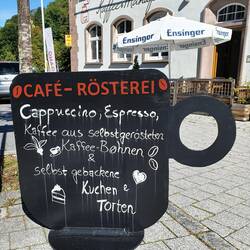 Ensinger
Ensinger
CAFÉ-RÖSTEREI
Cappuccino, Espresso,
Kaffee aus selbstgerösteten
Kaffee-Bohnen
&
selbst gebackene
Kuchen &
Torten